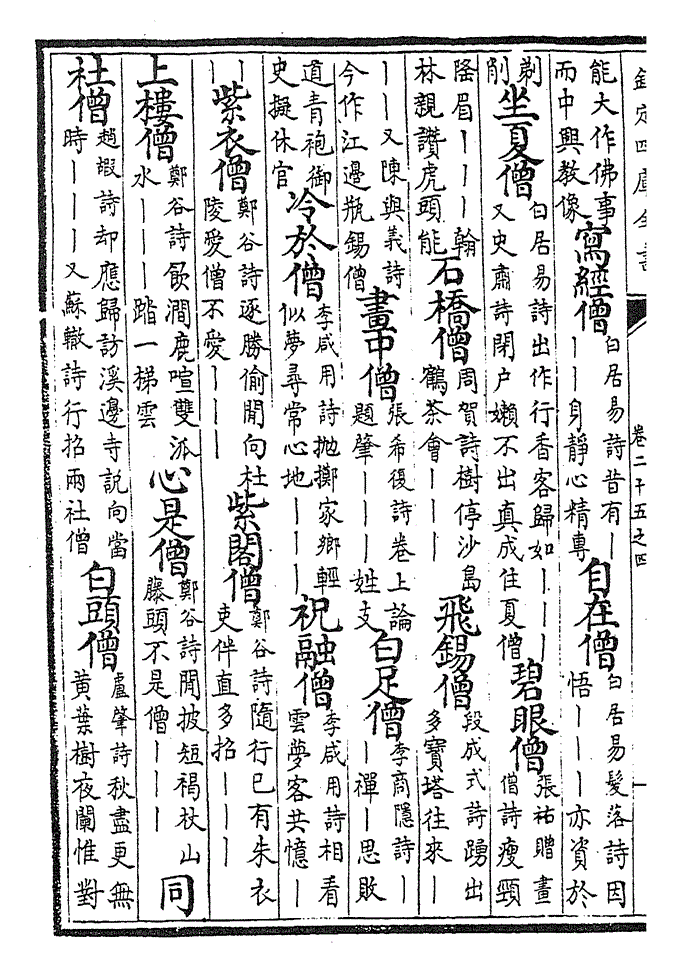 欽定四庫全書 卷二十五之四
能大作佛事而中興教像 寫經僧 白居易詩昔有丨丨丨身靜心精專 自在僧 白居易髮落詩因悟丨丨丨亦資於
剃削 坐夏僧 白居易詩出作行香客歸如丨丨丨又史肅詩閉户嬾不出真成住夏僧 碧眼僧 張祐贈畫僧詩瘦頸
隆眉丨丨丨翰林親讚虎頭能 石橋僧 周賀詩樹停沙島鶴茶會丨丨丨 飛錫僧 段成式詩踴出多寶塔往來丨
丨丨又陳與義詩今作江邊瓶錫僧 畫中僧 張希復詩卷上論題肇丨丨丨姓支 白足僧 李商隱詩丨丨禪丨思敗
道青袍御史擬休官 冷於僧 李咸用詩抛擲家鄉輕似夢尋常心地丨丨丨 祝融僧 李咸用詩相看雲夢客共憶丨
丨丨 紫衣僧 鄭谷詩逐勝偷閒向杜陵愛僧不愛丨丨丨 紫閣僧 鄭谷詩隨行已有朱衣吏伴直多招丨丨丨
上樓僧 鄭谷詩飲澗鹿喧雙派水丨丨丨踏一梯雲 心是僧 鄭谷詩閒披短褐杖山藤頭不是僧丨丨丨 同
社僧 趙嘏詩却應歸訪溪邊寺説向當時丨丨丨又蘇轍詩行招兩社僧 白頭僧 盧肇詩秋盡更無黃葉樹夜闌惟對